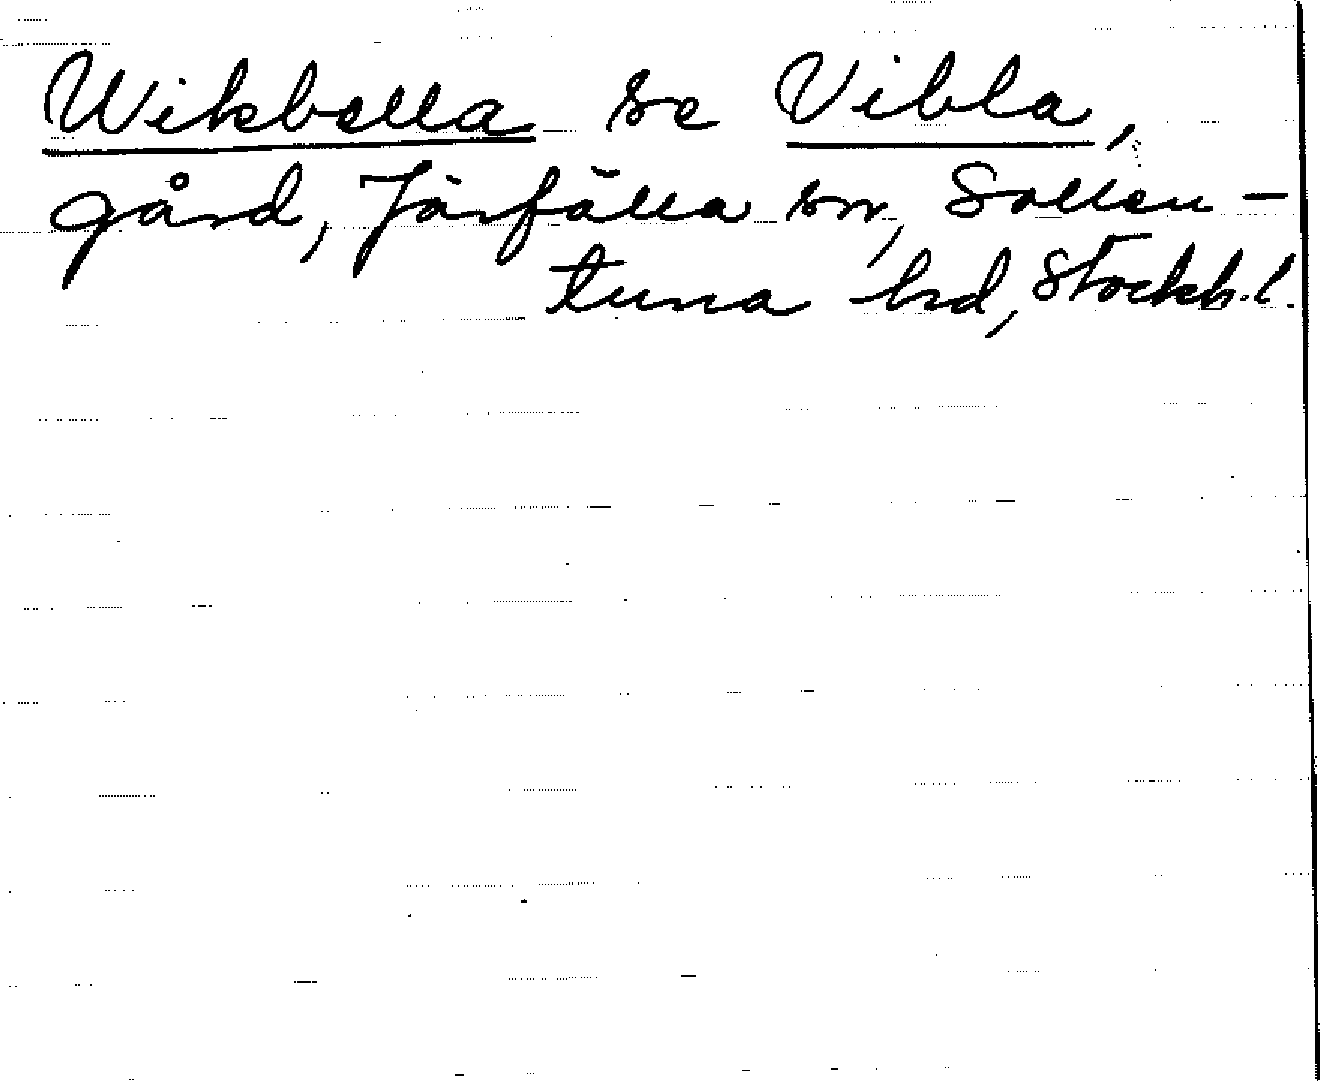 Wikbella se Vibla,
gård, Järfälla sn, Sollen-
tuna hd, Stockh.l.